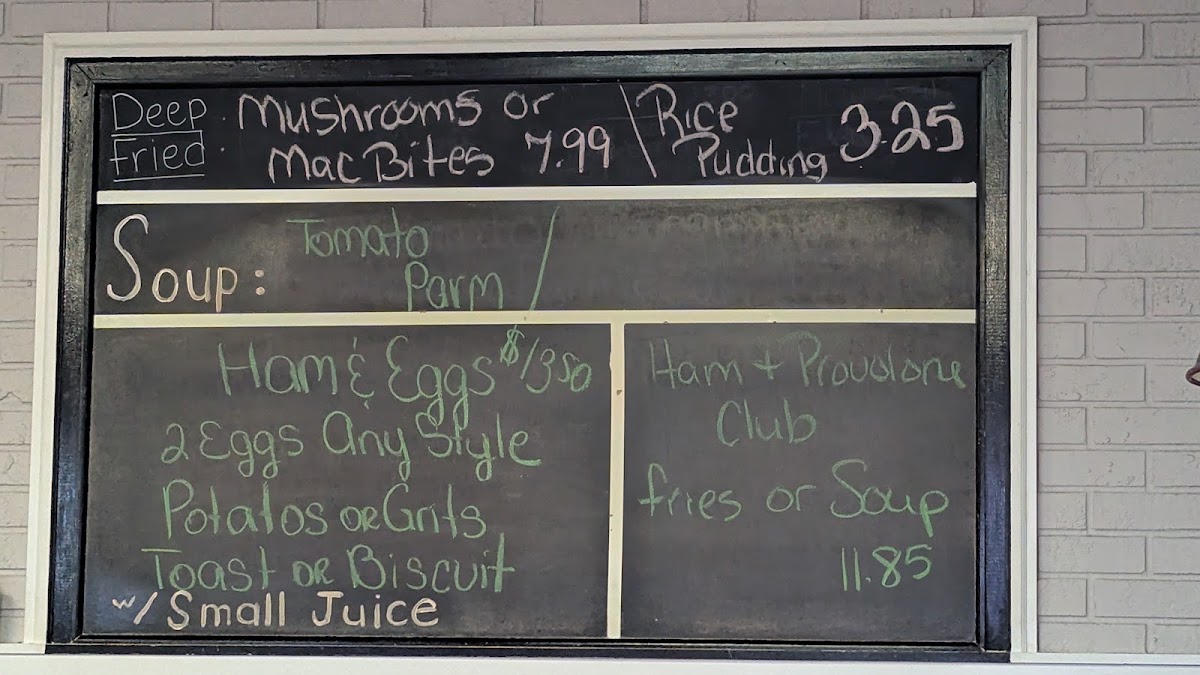 Deep Fried : Mushrooms or
Mac Bites 7.99 \ Rice Pudding 3.25
Soup: Tomato Parm /
Ham & Eggs $13.50
2 Eggs Any Style
Potatos or Grits
Toast or Biscuit
w/ Small Juice
Ham + Provolone
Club
fries or Soup
11.85